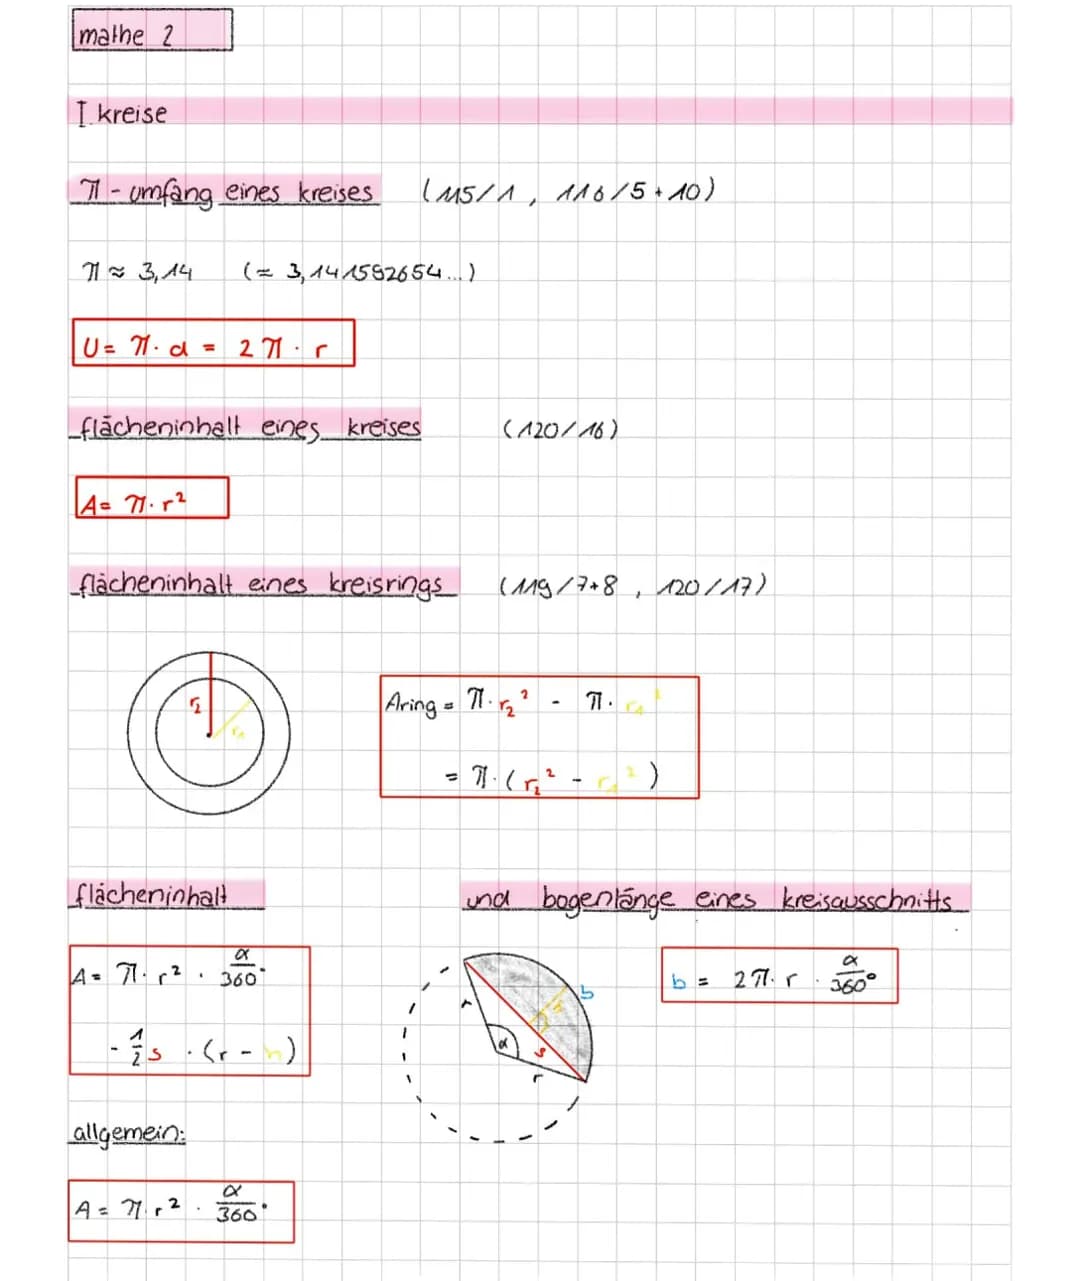 mathe 2
I kreise
π - umfang eines kreises (115/1, 116/5+10)
π ≈ 3,14 (≈ 3,141592654...)
U = π · d = 2π · r
flächeninhalt eines kreises (120/16)
A = π · r²
flächeninhalt eines kreisrings (119/7+8, 120/17)
r₂
r₁
Aring = π · r₂² - π · r₁²
= π · (r₂² - r₁²)
flächeninhalt und bogenlänge eines kreisausschnitts
A = π · r² · α/360°
- 1/2 s · (r - h)
b
h
r
α
s
r
b = 2π · r · α/360°
allgemein:
A = π · r² · α/360°